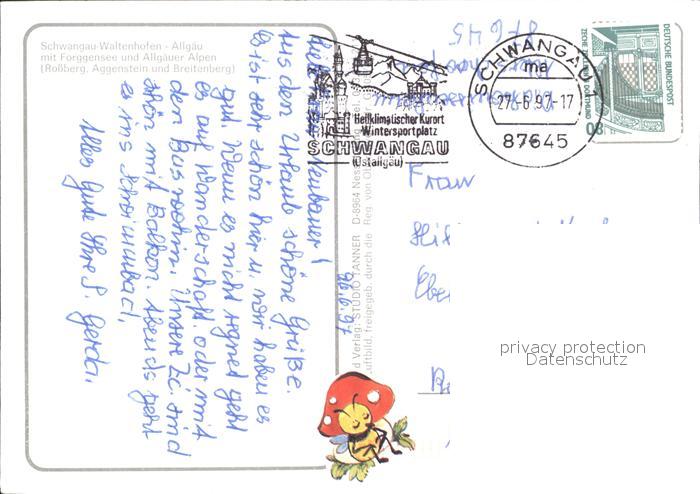 Schwangau-Waltenhofen - Allgäu
mit Forggensee und Allgäuer Alpen
(Roßberg, Aggenstein und Breitenberg)
26.6.97
Aus dem Urlaub schöne Grüße.
Es ist sehr schön hier u. wir haben es
gut. Wenn es nicht regnet geht
es auf Wanderschaft. oder mit
den Bus wohin. Unsere Zi. sind
schön mit Balkon. Abends geht
es ins Schwimmbad,
Alles Gute Ihre S. Gerda.
Verlag: STUDIO TANNER D-8964
Luftbild, freigegeb. durch die Reg. von
Heilklimatischer Kurort
Wintersportplatz
SCHWANGAU
(Ostallgäu)
SCHWANGAU 1
ma
27.-6.97.-17
87645
DEUTSCHE BUNDESPOST
80
87645
Frau
privacy protection
Datenschutz